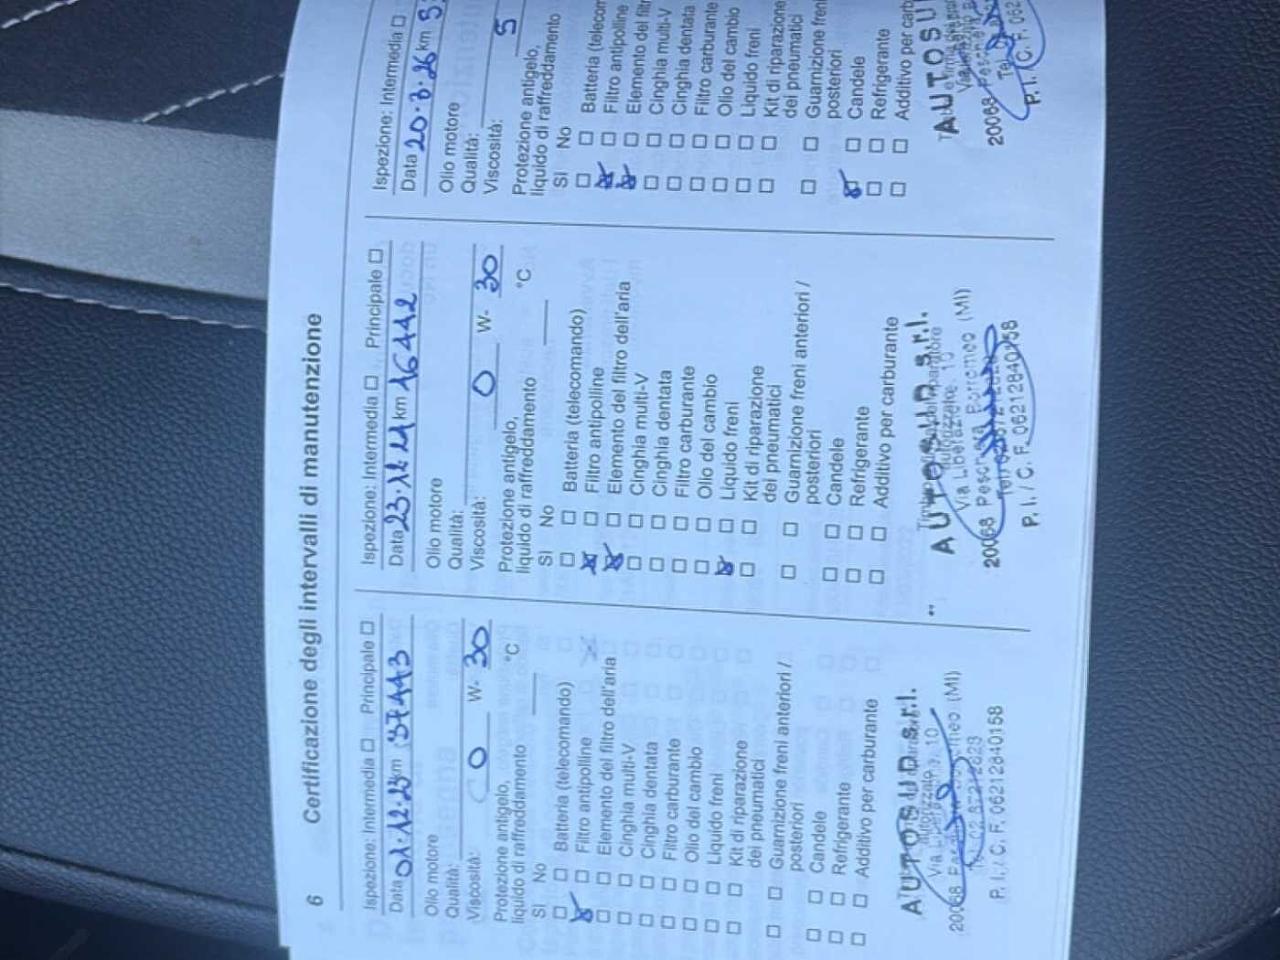 6 Certificazione degli intervalli di manutenzione
Ispezione: Intermedia ☐ Principale ☐
Data 01.12.23 km 37443
Olio motore
Qualità:
Viscosità: 0 W- 30
Protezione antigelo,
liquido di raffreddamento °C
Sì No
Batteria (telecomando)
Filtro antipolline
Elemento del filtro dell'aria
Cinghia multi-V
Cinghia dentata
Filtro carburante
Olio del cambio
Liquido freni
Kit di riparazione
dei pneumatici
Guarnizione freni anteriori /
posteriori
Candele
Refrigerante
Additivo per carburante
AUTOSUD s.r.l.
20068 (MI)
P. I. / C. F. 06212840158
Ispezione: Intermedia ☐ Principale ☐
Data 23.11.21 km 16442
Olio motore
Qualità:
Viscosità: 0 W- 30
Protezione antigelo,
liquido di raffreddamento °C
Sì No
Batteria (telecomando)
Filtro antipolline
Elemento del filtro dell'aria
Cinghia multi-V
Cinghia dentata
Filtro carburante
Olio del cambio
Liquido freni
Kit di riparazione
dei pneumatici
Guarnizione freni anteriori /
posteriori
Candele
Refrigerante
Additivo per carburante
AUTOSUD s.r.l.
Via Liberazione, 10
20068 Peschiera Borromeo (MI)
P. I. / C. F. 06212840158
Ispezione: Intermedia ☐
Data 20.3.26 km
Olio motore
Qualità:
Viscosità: 5
Protezione antigelo,
liquido di raffreddamento
Sì No
Batteria (telecom
Filtro antipolline
Elemento del filtr
Cinghia multi-V
Cinghia dentata
Filtro carburante
Olio del cambio
Liquido freni
Kit di riparazione
dei pneumatici
Guarnizione freni
posteriori
Candele
Refrigerante
Additivo per carb
AUTOSU
20068
P. I. / C. F. 062